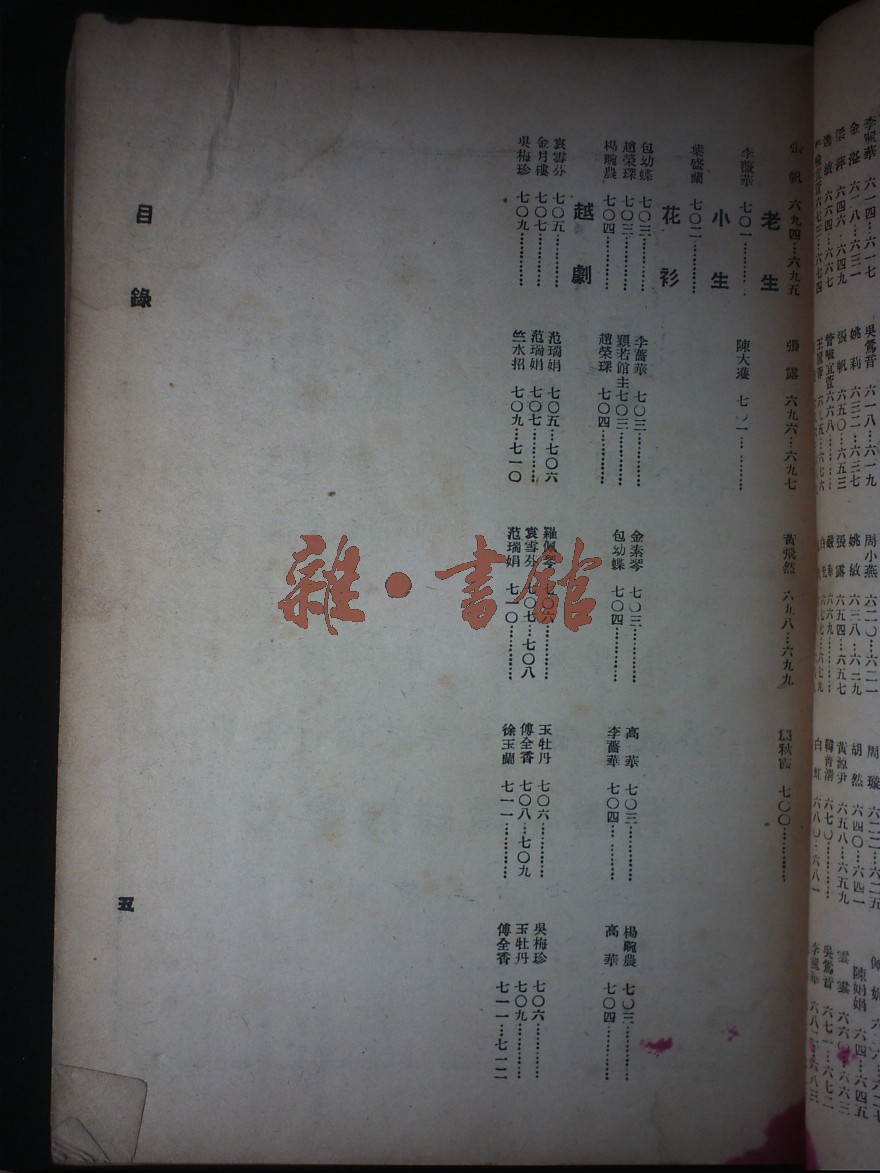 張帆 六九四…六九五 張露 六九六…六九七 黃飛然 六九八…六九九 秋霞 七〇〇…………
老生
李薔華 七〇一………… 陳大濩 七〇一…………
小生
葉盛蘭 七〇二…………
花衫
包幼蝶 七〇三………… 李薔華 七〇三………… 金素琴 七〇三………… 高華 七〇三………… 楊畹農 七〇三…………
趙榮琛 七〇三………… 顥若館主 七〇三………… 包幼蝶 七〇四………… 李薔華 七〇四………… 高華 七〇四…………
楊畹農 七〇四………… 趙榮琛 七〇四…………
越劇
袁雪芬 七〇五………… 范瑞娟 七〇五…七〇六 羅佩琴 七〇六………… 玉牡丹 七〇六………… 吳梅珍 七〇六…………
金月樓 七〇七………… 范瑞娟 七〇七………… 袁雪芬 七〇七…七〇八 傅全香 七〇八…七〇九 玉牡丹 七〇九…………
吳梅珍 七〇九………… 竺水招 七〇九…七一〇 范瑞娟 七一〇………… 徐玉蘭 七一一………… 傅全香 七一一…七一二
目錄
五
李薔華 六一四…六一七 吳鶯音 六一八…六一九 周小燕 六二〇…六二一 周璇 六二二…六二五
金溢 六二八…六三一 姚莉 六三二…六三七 姚敏 六三八…六三九 胡然 六四〇…六四一 陳娟娟 六四四…六四五
梁萍 六四六…六四九 張帆 六五〇…六五三 張露 六五四…六五七 黃源尹 六五八…六五九 雲雲 六六〇…六六三
逸敏 六六四…六六七 六六八………… 嚴華 六六九………… 韓菁清 六七〇………… 吳鶯音 六七一…六七二
六七三…六七四 白虹 六八〇…六八一
雜·書館